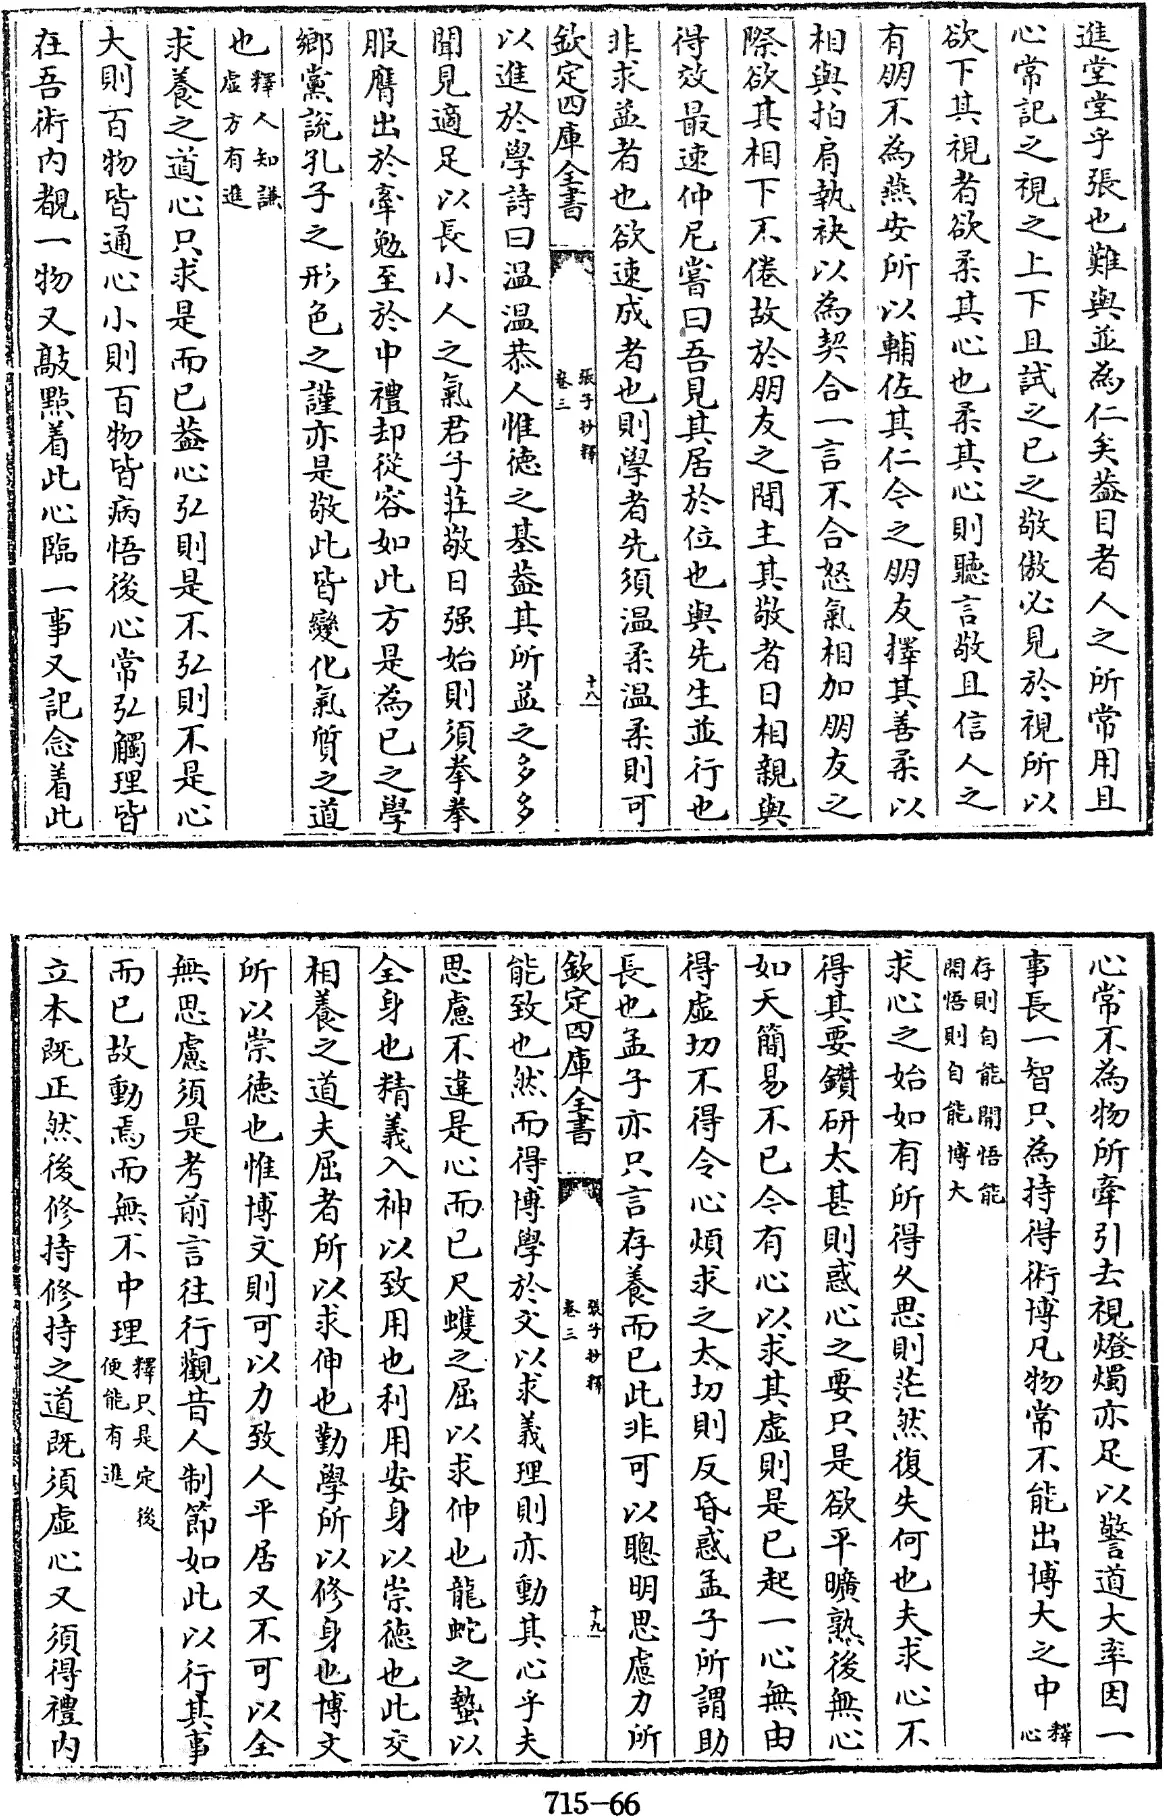 進堂堂乎張也難與並為仁矣葢目者人之所常用且
心常記之視之上下且試之已之敬傲必見於視所以
欲下其視者欲柔其心也柔其心則聽言敬且信人之
有朋不為燕安所以輔佐其仁今之朋友擇其善柔以
相與拍肩執袂以為契合一言不合怒氣相加朋友之
際欲其相下不倦故於朋友之間主其敬者日相親與
得效最速仲尼嘗曰吾見其居於位也與先生並行也
非求益者也欲速成者也則學者先須温柔温柔則可
欽定四庫全書
張子抄釋
卷三
十八
以進於學詩曰温温恭人惟徳之基葢其所益之多多
聞見適足以長小人之氣君子莊敬日强始則須拳拳
服膺出於牽勉至於中禮却從容如此方是為已之學
鄉黨說孔子之形色之謹亦是敬此皆變化氣質之道
也釋人知謙
虛方有進
求養之道心只求是而已葢心弘則是不弘則不是心
大則百物皆通心小則百物皆病悟後心常弘觸理皆
在吾術内覩一物又敲點着此心臨一事又記念着此
心常不為物所牽引去視燈燭亦足以警道大率因一
事長一智只為持得術博凡物常不能出博大之中釋
心
存則自能開悟能
開悟則自能博大
求心之始如有所得久思則茫然復失何也夫求心不
得其要鑽研太甚則惑心之要只是欲平曠熟後無心
如天簡易不已今有心以求其虛則是已起一心無由
得虛切不得令心煩求之太切則反昏惑孟子所謂助
長也孟子亦只言存養而已此非可以聰明思慮力所
欽定四庫全書
張子抄釋
卷三
十九
能致也然而得博學於文以求義理則亦動其心乎夫
思慮不違是心而已尺蠖之屈以求伸也龍蛇之蟄以
全身也精義入神以致用也利用安身以崇徳也此交
相養之道夫屈者所以求伸也勤學所以修身也博文
所以崇徳也惟博文則可以力致人平居又不可以全
無思慮須是考前言往行觀昔人制節如此以行其事
而已故動焉而無不中理釋只是定後
便能有進
立本既正然後修持修持之道既須虛心又須得禮内
715-66